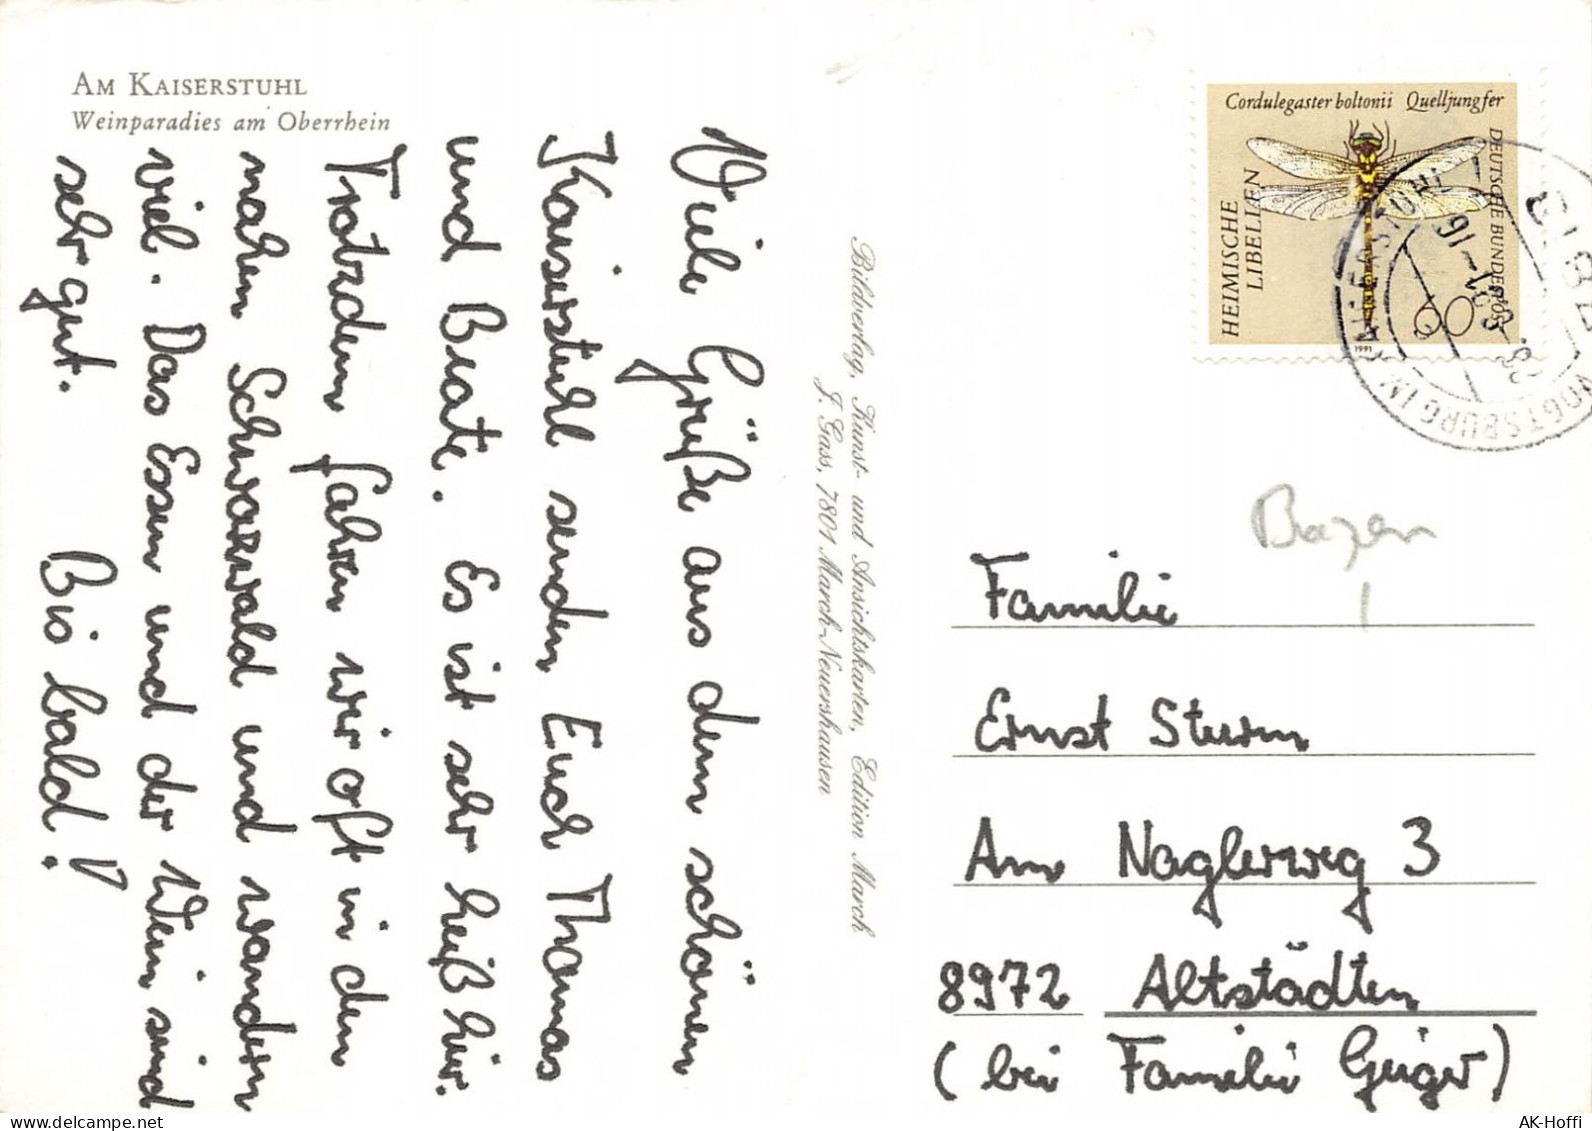 AM KAISERSTUHL
Weinparadies am Oberrhein
Viele Grüße aus dem schönen
Kaiserstuhl senden Euch Thomas
und Beate. Es ist sehr heiß hier.
Trotzdem fahren wir oft in den
nahen Schwarzwald und wandern
viel. Das Essen und der Wein sind
sehr gut. Bis bald!
Bildverlag, Kunst- und Ansichtskarten, Edition March
J. Gass, 7801 March-Neuershausen
Cordulegaster boltonii Quelljungfer
HEIMISCHE
LIBELLEN
DEUTSCHE BUNDESPOST
60
1991
VOGTSBURG IM KAISERSTUHL
-8.91-16
Familie
Ernst Sturm
Am Naglerweg 3
8972 Altstädten
(bei Familie Geiger)
AK-Hoffi